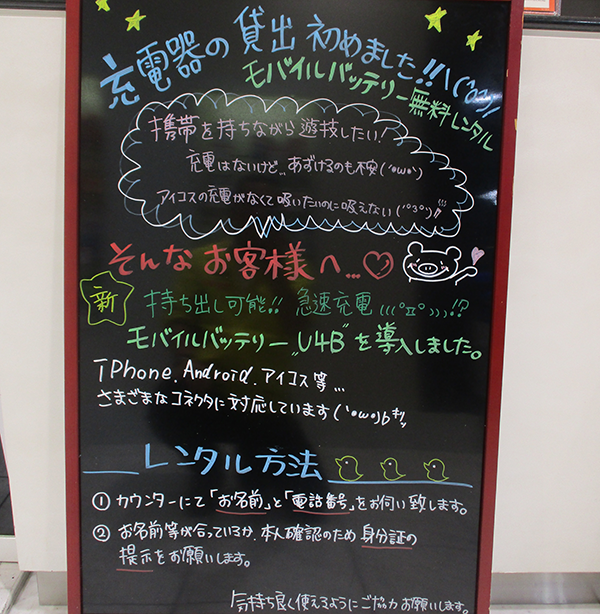 充電器の貸出 初めました!!\(^o^)/
モバイルバッテリー無料レンタル
携帯を持ちながら遊技したい!
充電はないけど…あずけるのも不安(´・ω・`)
アイコスの充電がなくて吸いたいのに吸えない(´°3°`)!!
そんなお客様へ…♡
新
持ち出し可能!! 急速充電 (((゜ロ゜)))!?
モバイルバッテリー"U4B"を導入しました。
iPhone、Android、アイコス等…
さまざまなコネクタに対応しています(`・ω・´)bキリッ
レンタル方法
① カウンターにて「お名前」と「電話番号」をお伺い致します。
② お名前等が合っているか、本人確認のため 身分証の
提示をお願いします。
気持ち良く使えるようにご協力お願いします。